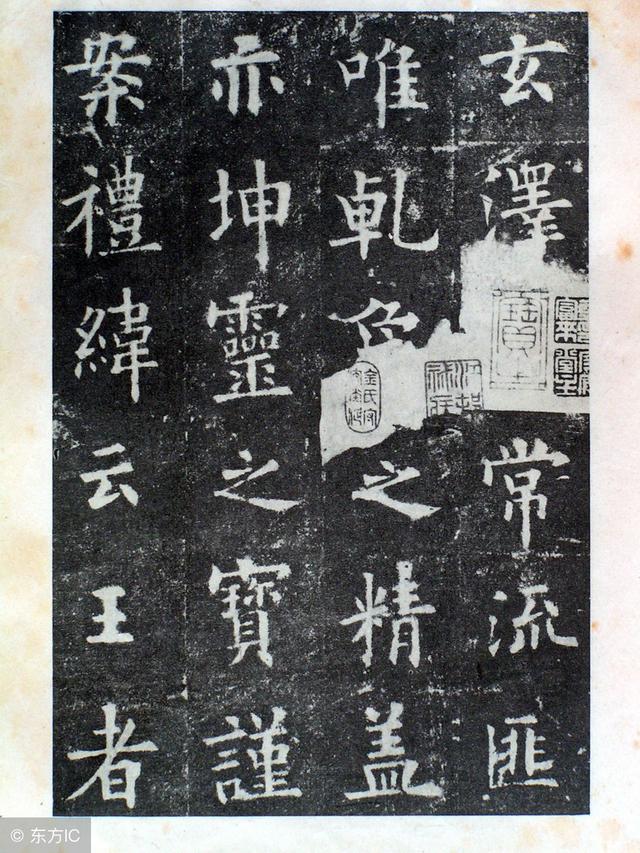 玄澤常流匪
唯乹之精盖
亦坤靈之寶謹
案禮緯云王者
© 东方IC